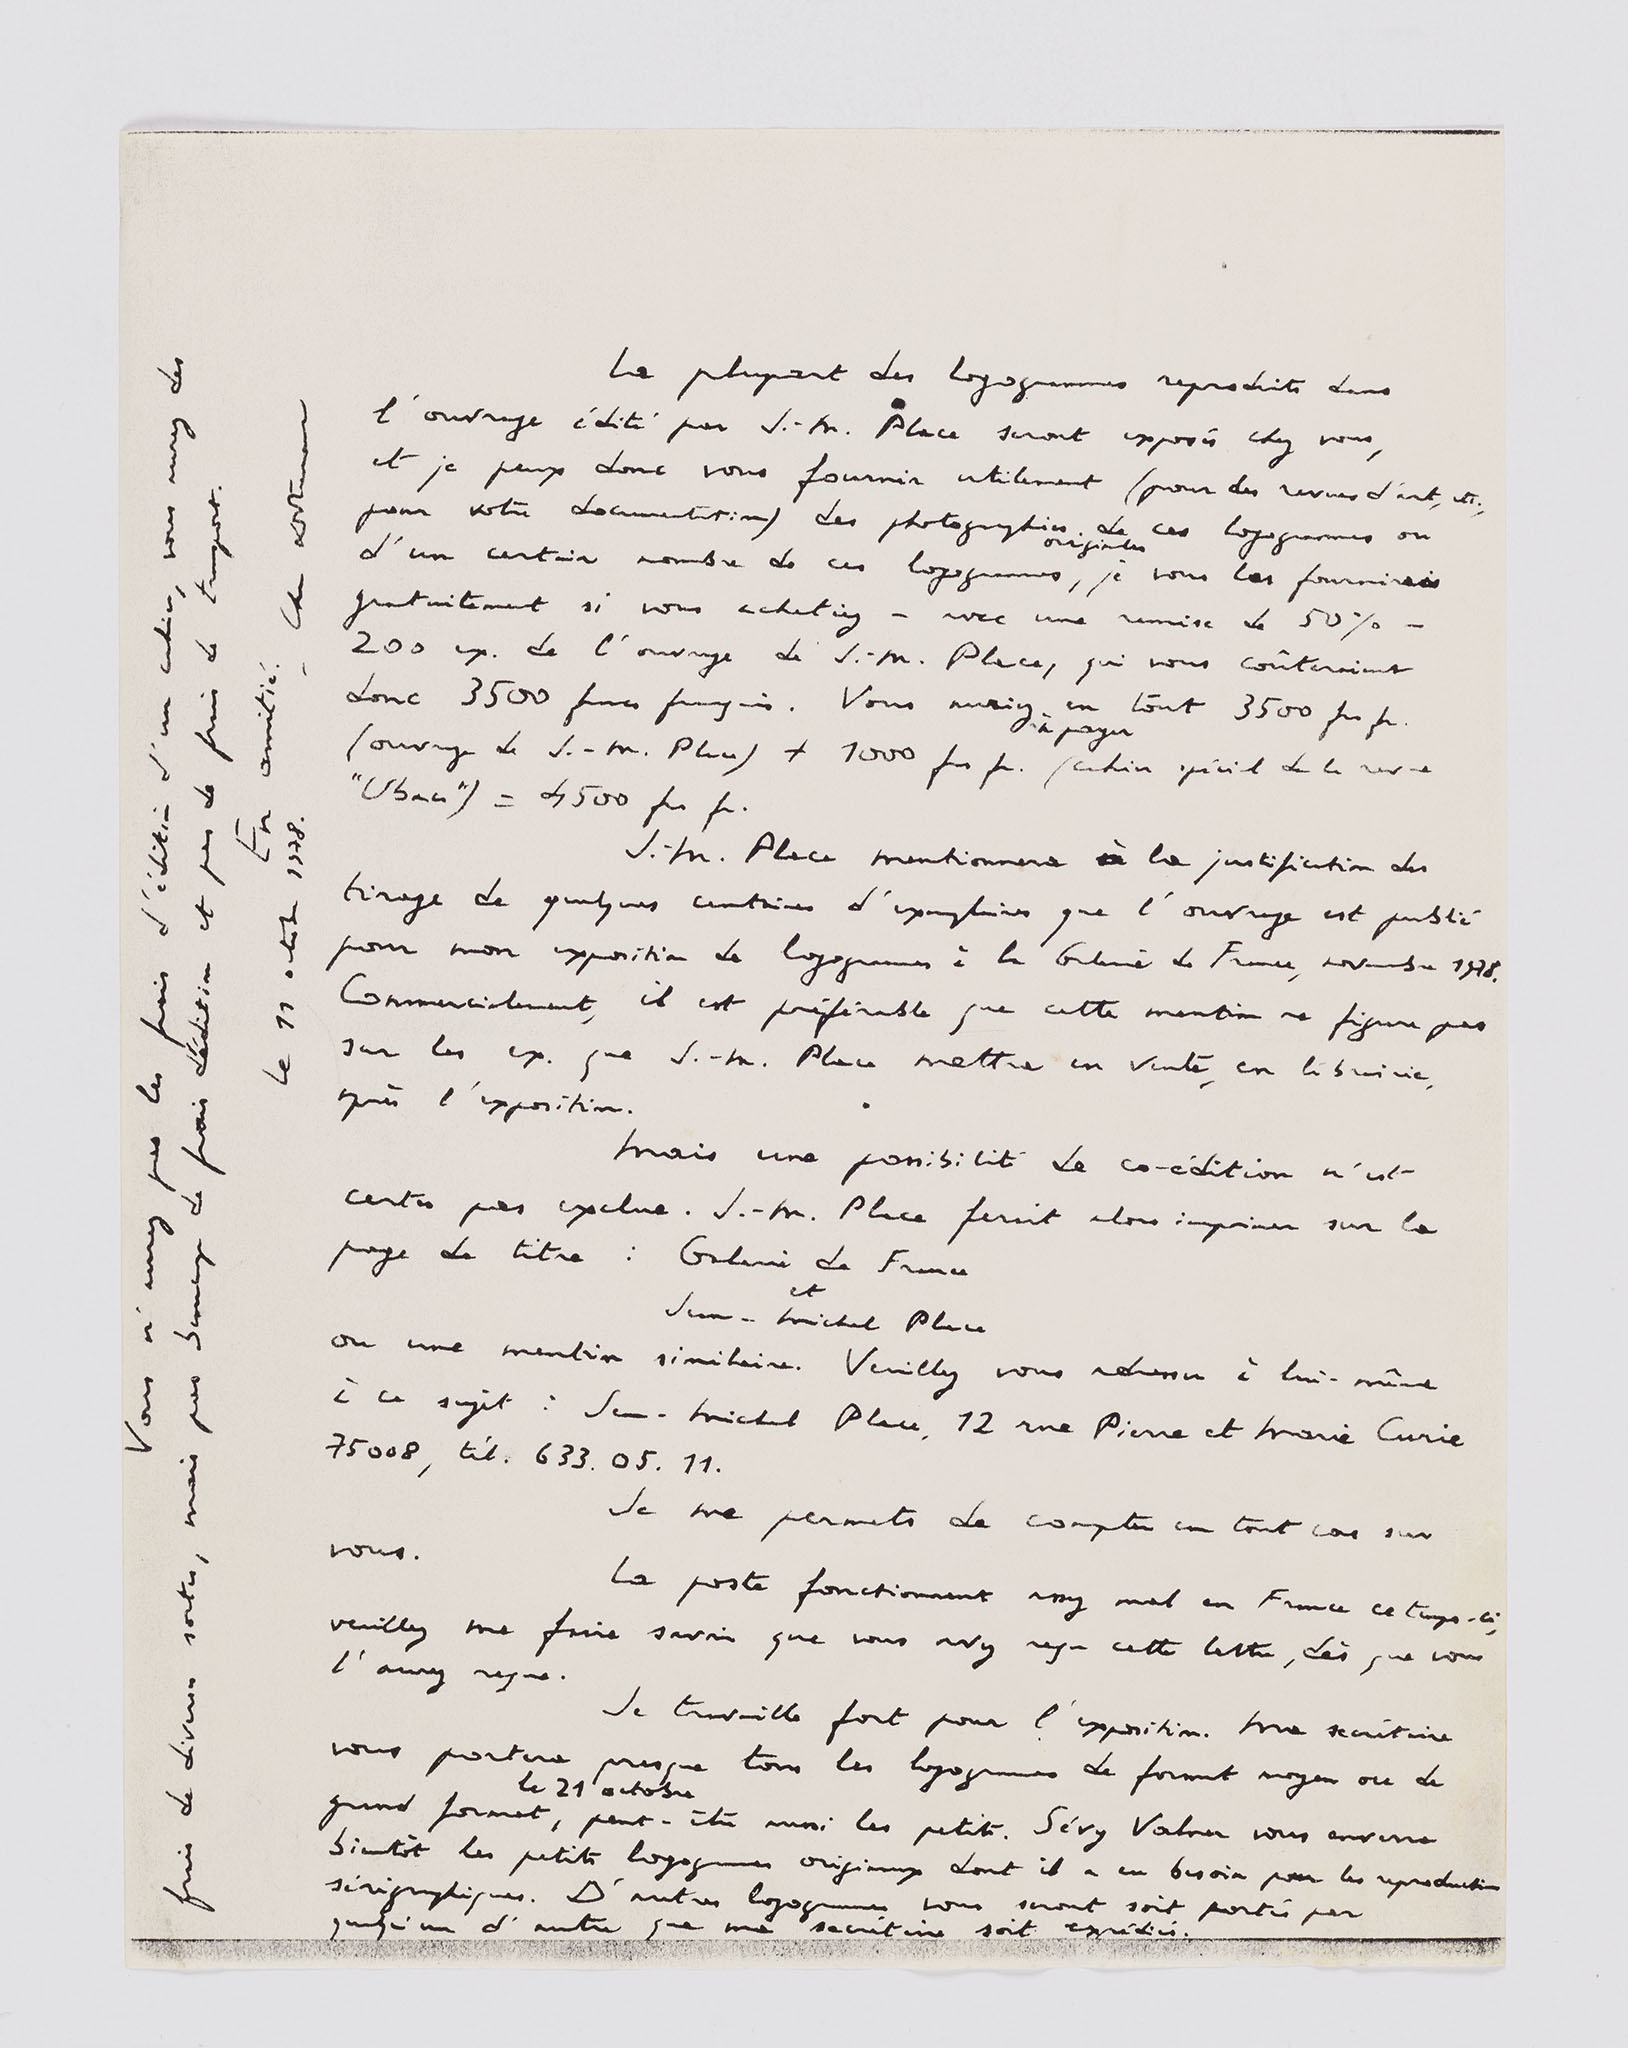 La plupart des logogrammes reproduits dans
l'ouvrage édité par J.-M. Place seront exposés chez vous,
et je peux donc vous fournir utilement (pour des revues d'art, etc.,
pour votre documentation) des photographies de ces logogrammes ou
originales
d'un certain nombre de ces logogrammes, je vous les fournirais
gratuitement si vous achetiez - avec une remise de 50% -
200 ex. de l'ouvrage de J.-M. Place, qui vous coûteraient
donc 3500 francs français. Vous auriez en tout 3500 frs fr.
à payer
(ouvrage de J.-M. Place) + 1000 frs fr. (cahier spécial de la revue
"Ubacs") = 4500 frs fr.
J.-M. Place mentionnera à la justification des
tirage de quelques centaines d'exemplaires que l'ouvrage est publié
pour mon exposition de logogrammes à la Galerie de France, novembre 1978.
Commercialement, il est préférable que cette mention ne figure pas
sur les ex. que J.-M. Place mettra en vente, en librairie,
après l'exposition.
Mais une possibilité de co-édition n'est
certes pas exclue. J.-M. Place ferait alors imprimer sur la
page de titre : Galerie de France
et
Jean-Michel Place
ou une mention similaire. Veuillez vous adresser à lui-même
à ce sujet : Jean-Michel Place, 12 rue Pierre et Marie Curie
75008, tél. 633.05.11.
Je me permets de compter en tout cas sur
vous.
La poste fonctionnent assez mal en France ce temps-ci,
veuillez me faire savoir que vous avez reçu cette lettre, dès que vous
l'aurez reçue.
Je travaille fort pour l'exposition. Ma secrétaire
vous portera presque tous les logogrammes de format moyen ou de
le 21 octobre
grand format, peut-être aussi les petits. Sévy Valner vous enverra
bientôt les petits logogrammes originaux dont il a eu besoin pour les reproductions
sérigraphiques. D'autres logogrammes vous seront soit portés par
quelqu'un d'autre que ma secrétaire soit expédiés.
Vous n'aurez pas les frais d'édition d'un cahier, vous aurez des
frais de diverses sortes, mais pas beaucoup de frais d'édition et pas de frais de transport.
En amitié.
Le 11 octobre 1978. - Chr Dotremont